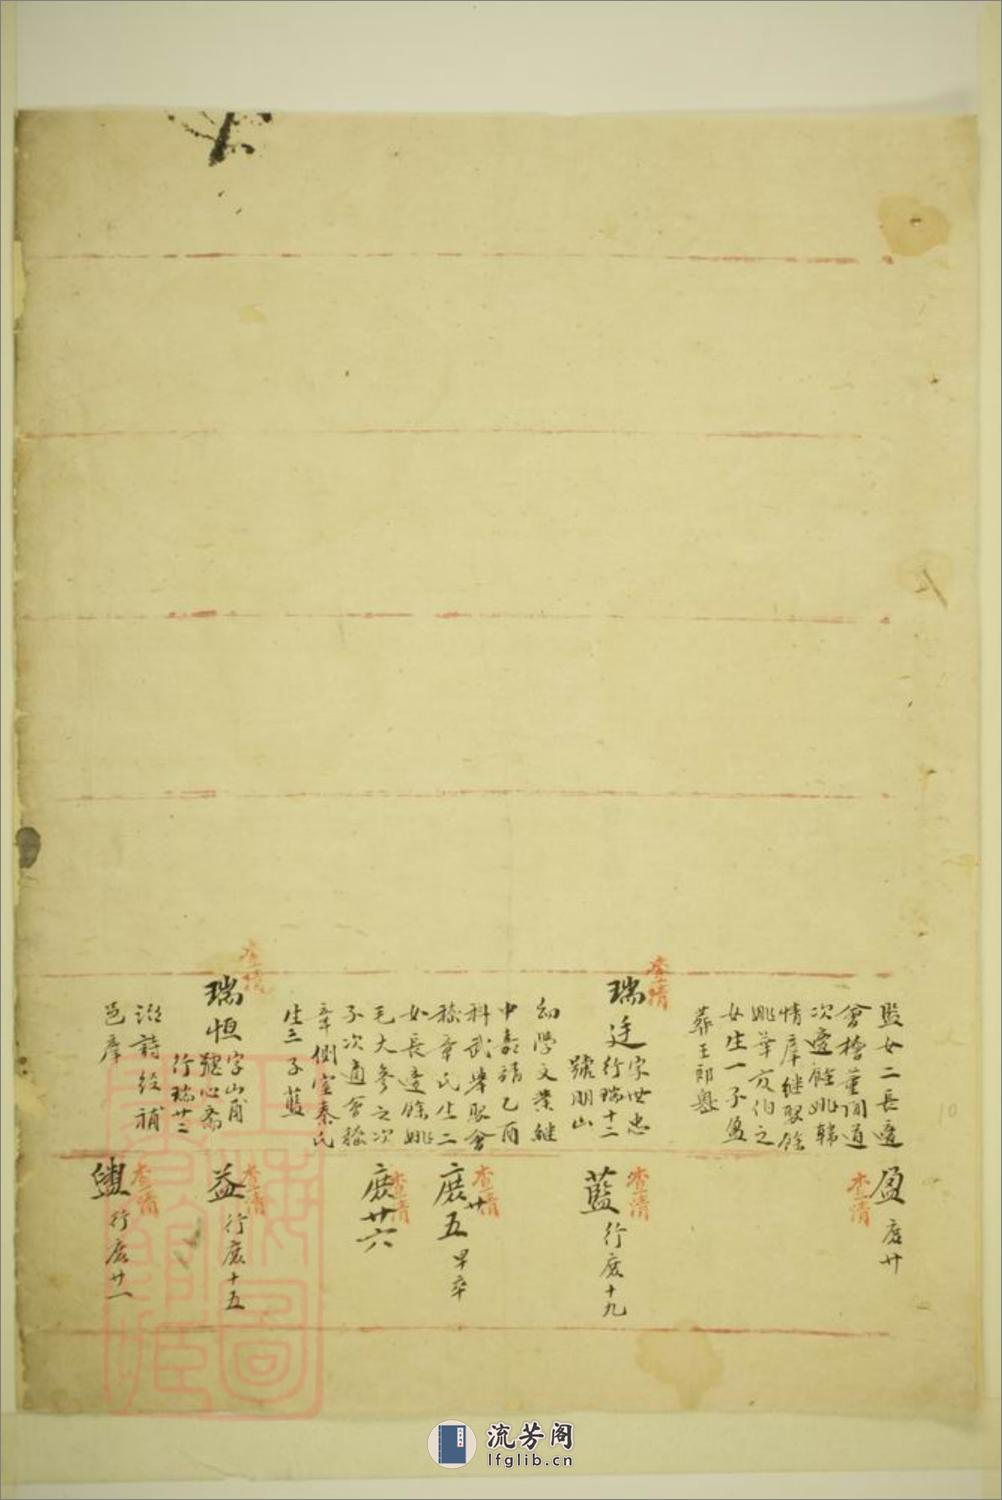 監女二長適
會稽董浰道
次適餘姚韓
情庠繼娶餘
姚華友伯之
女生一子盈
葬王郎輿
盈
庶廿
查清
查清
瑞廷
字世忠
行瑞十二
號朋山
幼學文業継
中嘉靖乙酉
科武舉娶會
稽章氏生二
女長適餘姚
毛大參之次
子次適會稽
章側室秦氏
生三子藍
藍
行庶十九
查清
庶廿五
早卒
查清
庶廿六
查清
查清
瑞恒
字山甫
號心齋
行瑞廿二
游詩經補
邑庠
益
行庶十五
查清
行庶廿一
查清
流芳阁
lfglib.cn